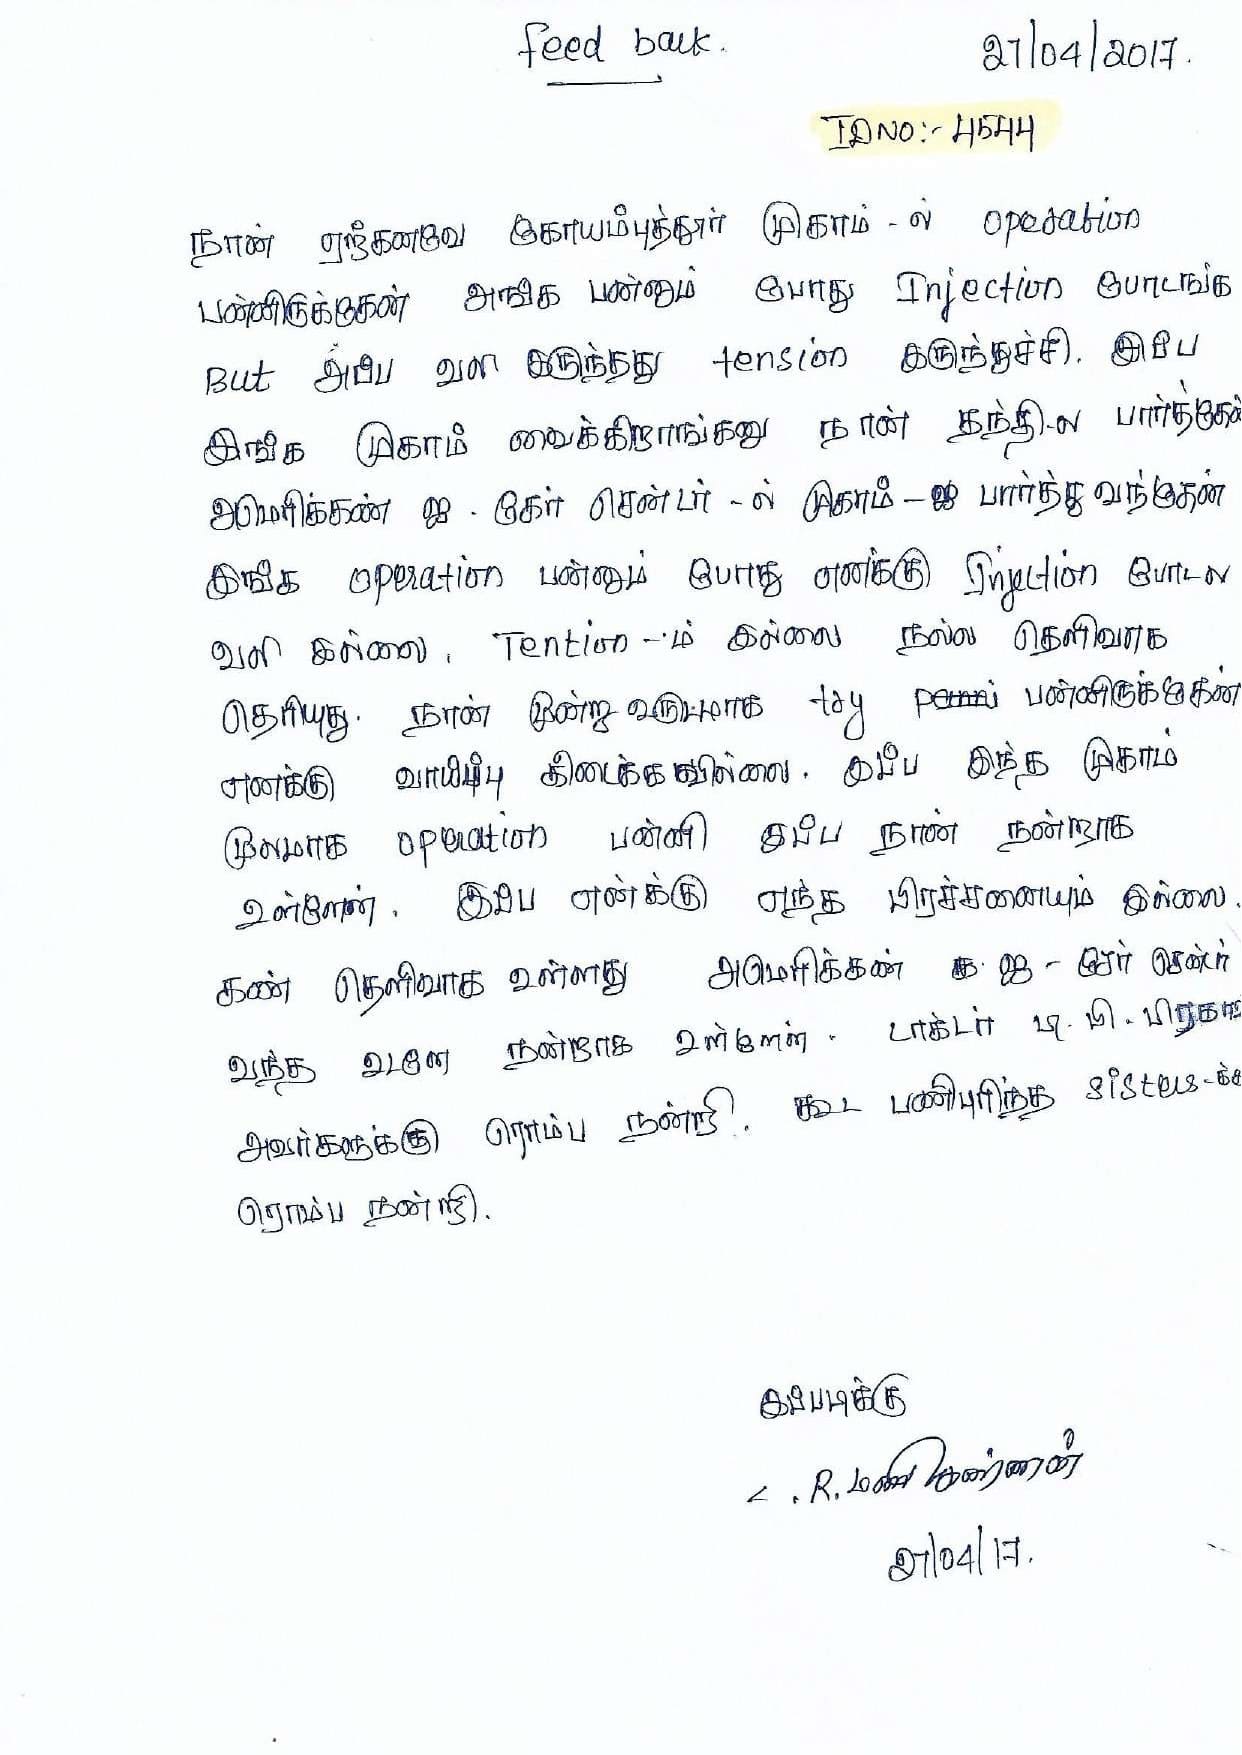 feed back.
27/04/2017.
ID NO:- 4544
நான் ஏற்கனவே கோயம்புத்தூர் முகாம் - ல் operation
பண்ணிருக்கேன் அங்க பண்ணும் போது Injection போடங்க
But அப்ப வலி இருந்தது tension இருந்துச்சி. இப்ப
இங்க முகாம் வைக்கிறாங்கனு நான் தந்தி-ல பார்த்தேன்
அமெரிக்கண் ஐ . கேர் சென்டர் - ல் முகாம் - ஐ பார்த்து வந்தேன்
இங்க operation பண்ணும் போது எனக்கு Injection போடல
வலி இல்லை. Tention -ம் இல்லை நல்ல தெளிவாக
தெரியுது. நான் மூன்று வருடமாக try பண்ணிருக்கேன்
எனக்கு வாய்ப்பு கிடைக்கவில்லை. இப்ப இந்த முகாம்
மூலமாக operation பண்ணி இப்ப நான் நன்றாக
உள்ளேன். இப்ப எணக்கு எந்த பிரச்சனையும் இல்லை.
கண் தெளிவாக உள்ளது அமெரிக்கண் ஐ - கேர் சென்டர்
வந்த உடனே நன்றாக உள்ளேன். டாக்டர் டி. பி.
அவர்களுக்கு ரொம்ப நன்றி. கூட பணிபுரிந்த sisters-க்
ரொம்ப நன்றி.
இப்படிக்கு
R. மணிகண்ணன்
27/04/17.